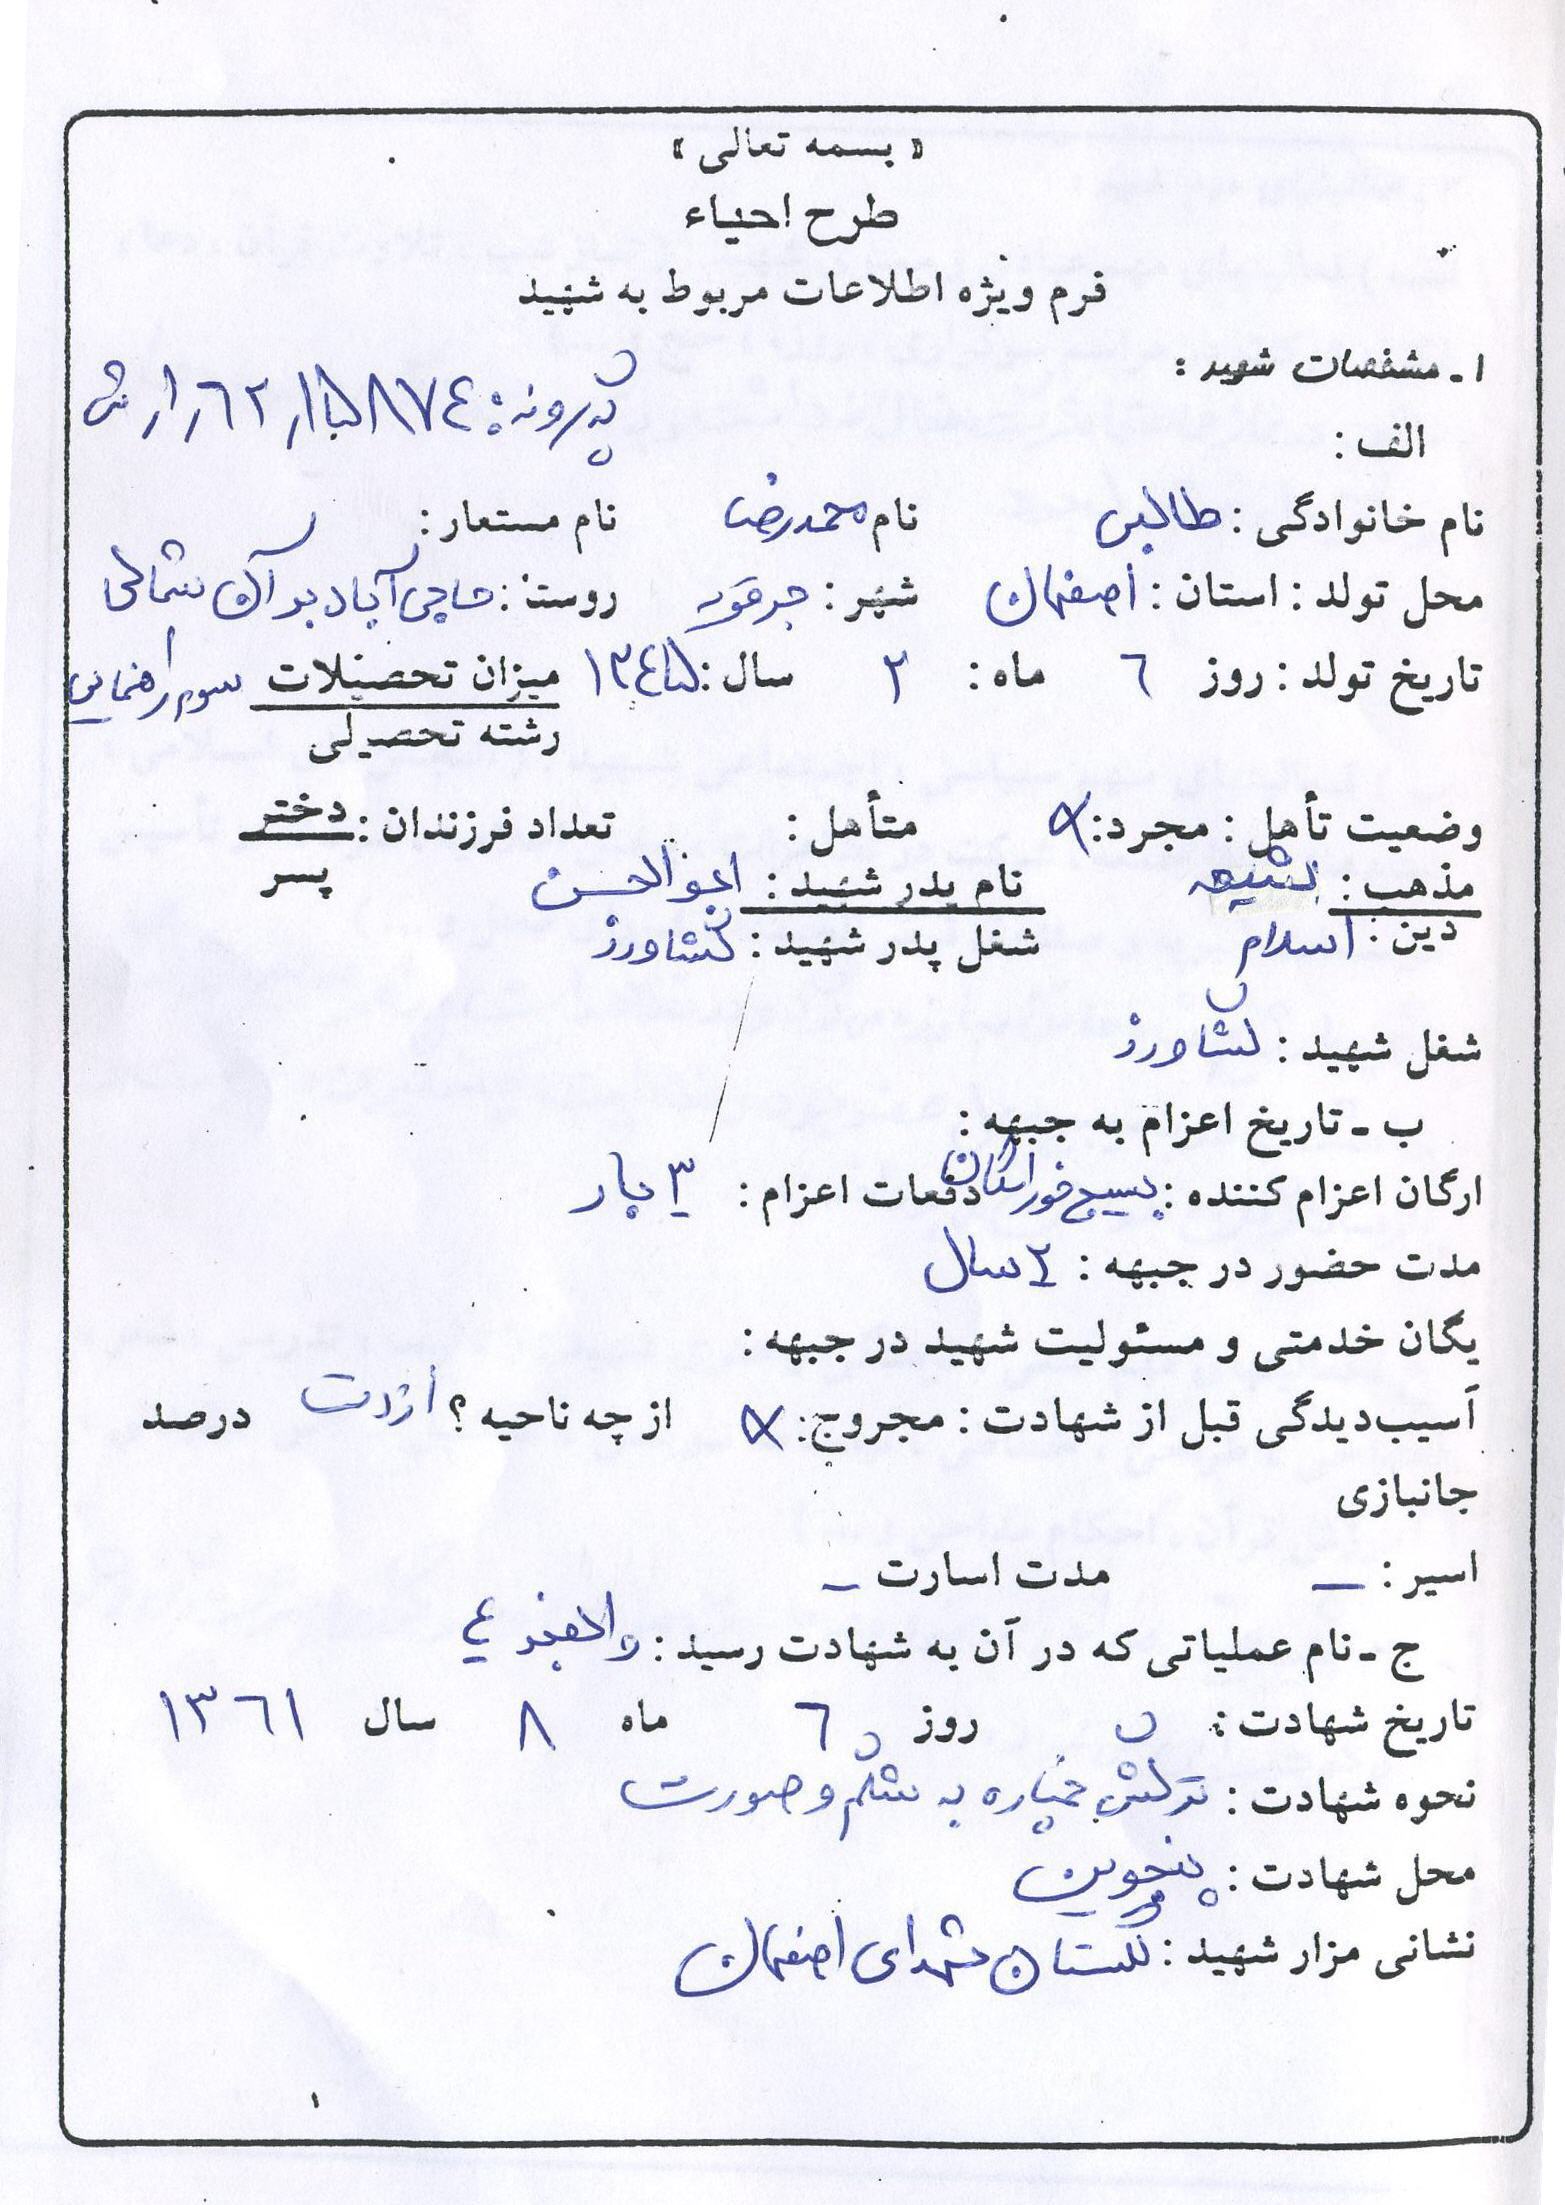 « بسمه تعالی »
طرح احیاء
فرم ویژه اطلاعات مربوط به شهید
۱ - مشخصات شهید :
پرونده :
الف :
نام خانوادگی : طالبی نام محمدرضا نام مستعار :
محل تولد : استان : اصفهان شهر : جرقویه روستا : حاجی آباد برآان شمالی
تاریخ تولد : روز ۶ ماه : ۲ سال : ۱۳۴۵ میزان تحصیلات سوم راهنمایی
رشته تحصیلی
وضعیت تأهل : مجرد : متأهل : تعداد فرزندان : دختر
پسر
مذهب : شیعه نام پدر شهید : ابوالحسن
دین : اسلام شغل پدر شهید : کشاورز
شغل شهید : کشاورز
ب - تاریخ اعزام به جبهه :
ارگان اعزام کننده : بسیج خوراسگان دفعات اعزام : ۳ بار
مدت حضور در جبهه : ۲ سال
یگان خدمتی و مسئولیت شهید در جبهه :
آسیب‌دیدگی قبل از شهادت : مجروح : از چه ناحیه ؟ از دست درصد
جانبازی
اسیر : – مدت اسارت –
ج - نام عملیاتی که در آن به شهادت رسید : والفجر ۴
تاریخ شهادت : روز ۶ ماه ۸ سال ۱۳۶۱
نحوه شهادت : ترکش خمپاره به شکم و صورت
محل شهادت : پنجوین
نشانی مزار شهید : گلستان شهدای اصفهان
۱